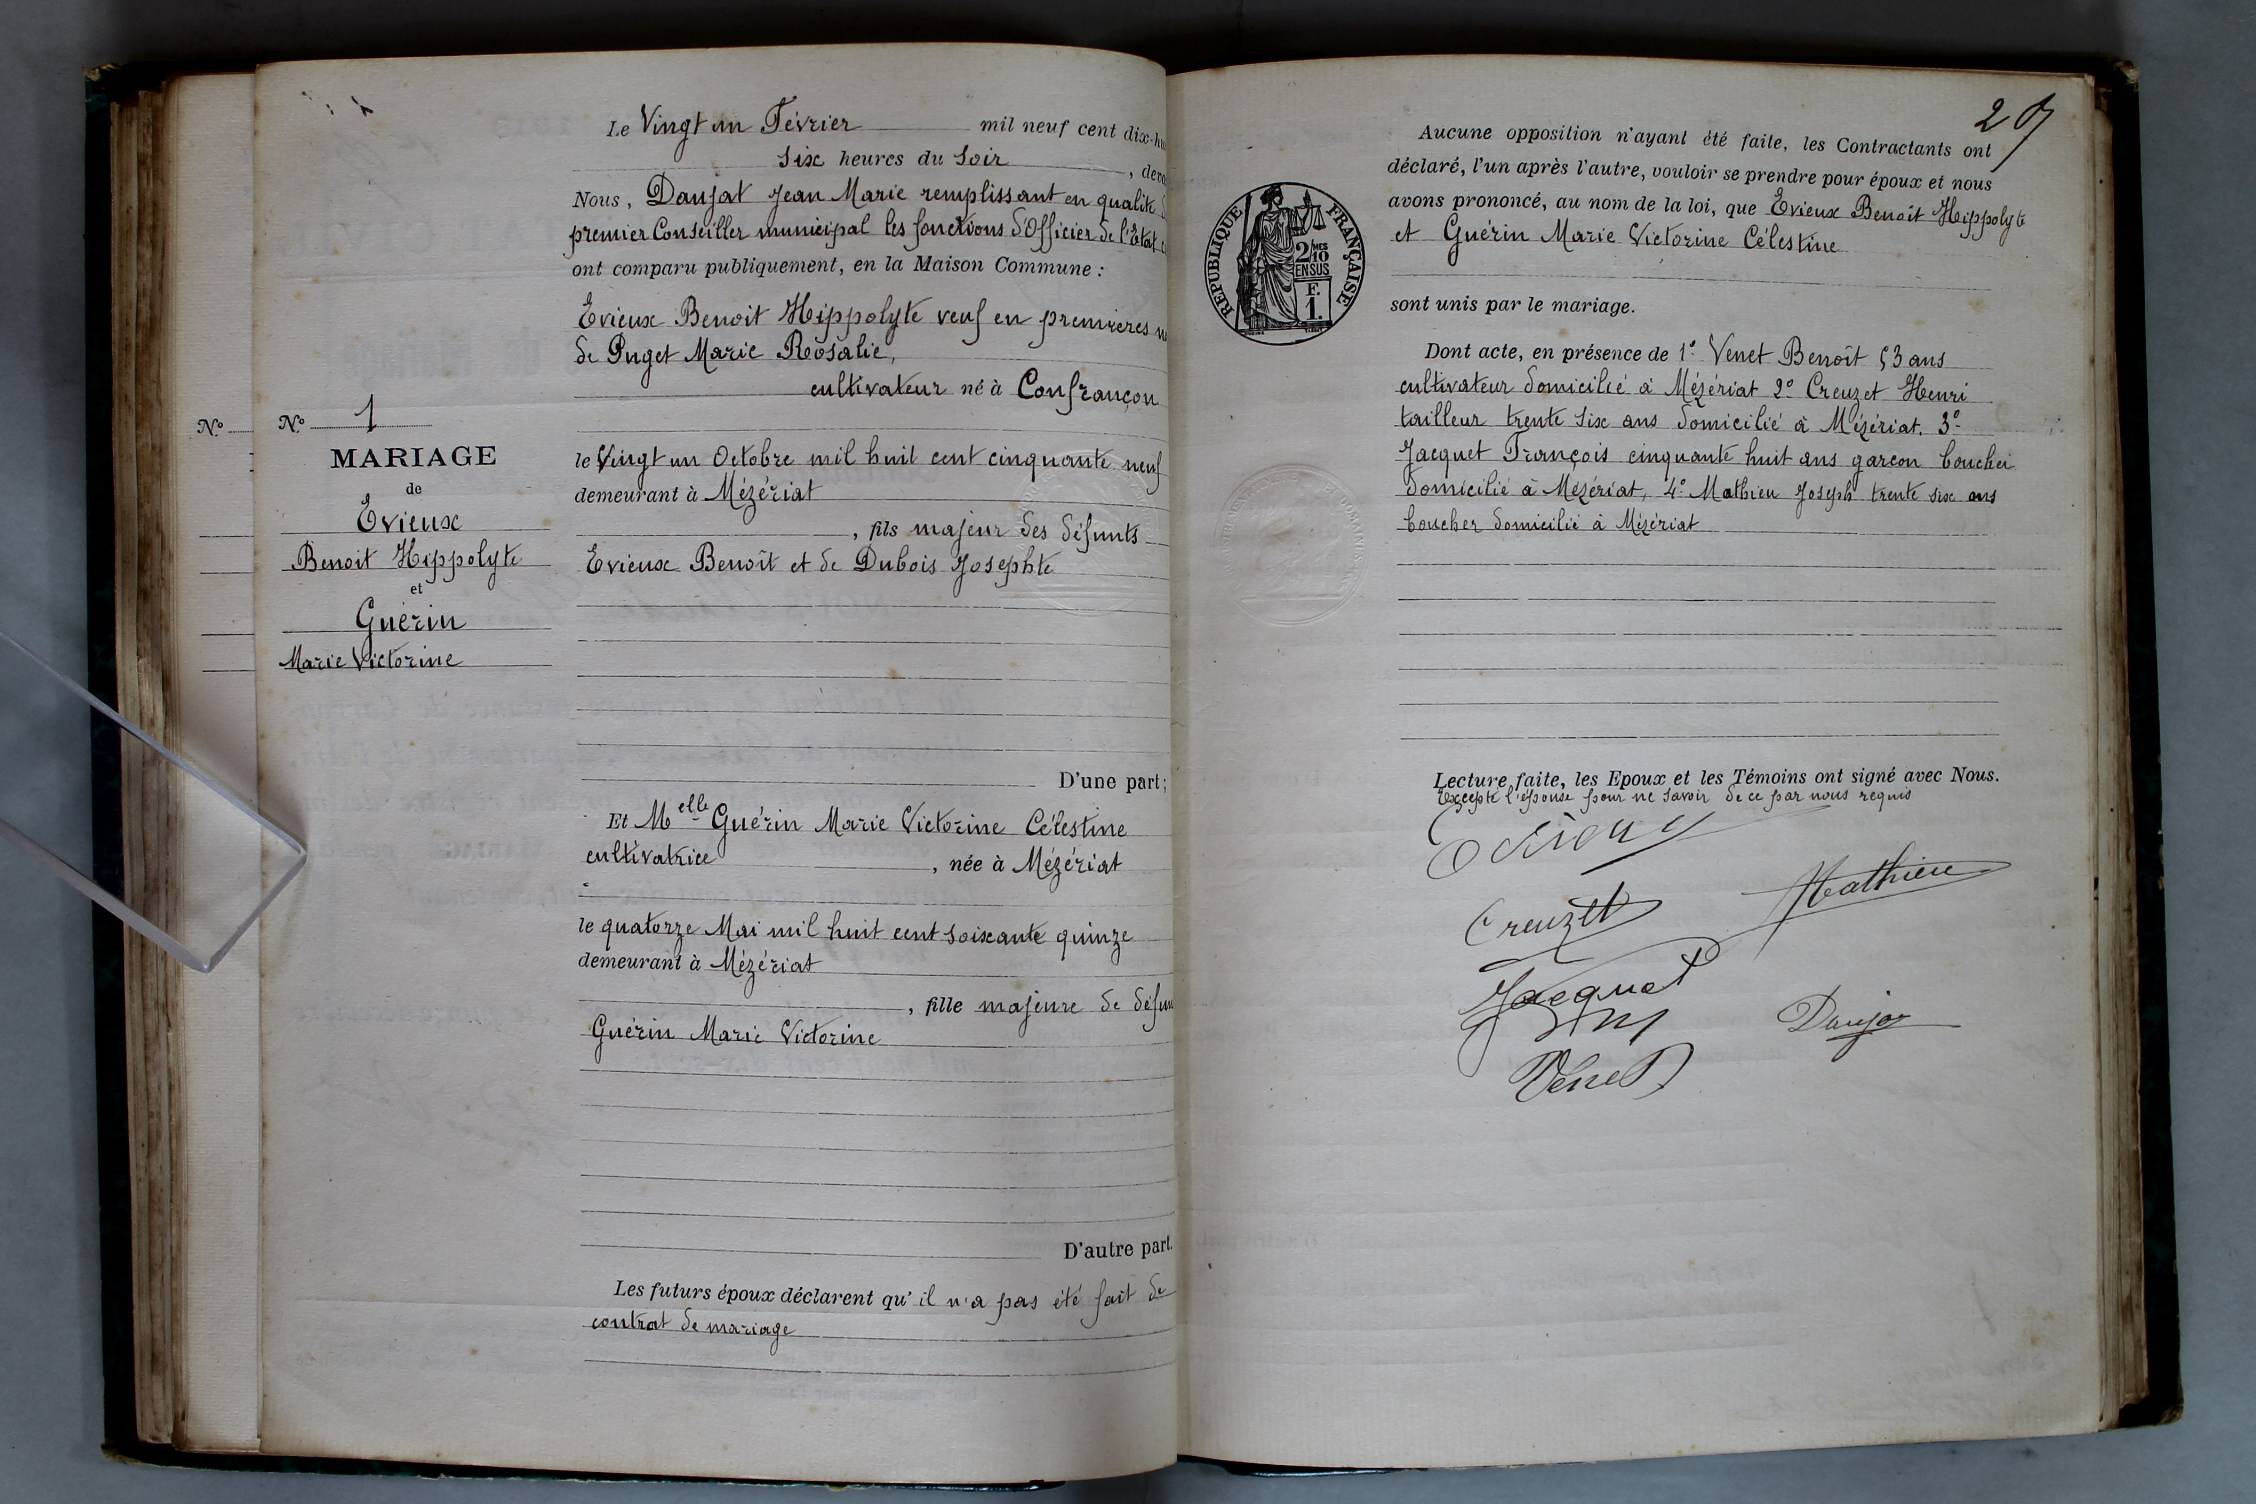 Le Vingt un Février mil neuf cent dix-hu
six heures du soir, deva
Nous, Daujat Jean Marie remplissant en qualité d
premier Conseiller municipal les fonctions d'Officier de l'Etat c
ont comparu publiquement, en la Maison Commune :
Evieux Benoit Hippolyte veuf en premières n
de Puget Marie Rosalie,
cultivateur né à Confrançon
le Vingt un Octobre mil huit cent cinquante neuf
demeurant à Mézériat
, fils majeur des défunts
Evieux Benoît et de Dubois Josephte
D'une part;
Et Melle Guérin Marie Victorine Célestine
cultivatrice, née à Mézériat
le quatorze Mai mil huit cent soixante quinze
demeurant à Mézériat
, fille majeure de défun
Guérin Marie Victorine
D'autre part.
Les futurs époux déclarent qu'il n'a pas été fait de
contrat de mariage
Nº
Nº 1
MARIAGE
de
Evieux
Benoit Hippolyte
et
Guérin
Marie Victorine
20
Aucune opposition n'ayant été faite, les Contractants ont
déclaré, l'un après l'autre, vouloir se prendre pour époux et nous
avons prononcé, au nom de la loi, que Evieux Benoît Hippolyte
et Guérin Marie Victorine Célestine
sont unis par le mariage.
REPUBLIQUE FRANÇAISE
2/10 MES
EN SUS
F.
1.
Dont acte, en présence de 1º Venet Benoît 53 ans
cultivateur domicilié à Mézériat 2º Creuzet Henri
tailleur trente six ans domicilié à Mézériat. 3º
Jacquet François cinquante huit ans garçon boucher
domicilié à Mézériat, 4º Mathieu Joseph trente six ans
boucher domicilié à Mézériat
Lecture faite, les Epoux et les Témoins ont signé avec Nous.
Excepté l'épouse pour ne savoir de ce par nous requis
Evieux
Creuzet Mathieu
Jacquet
Daujat
Venet